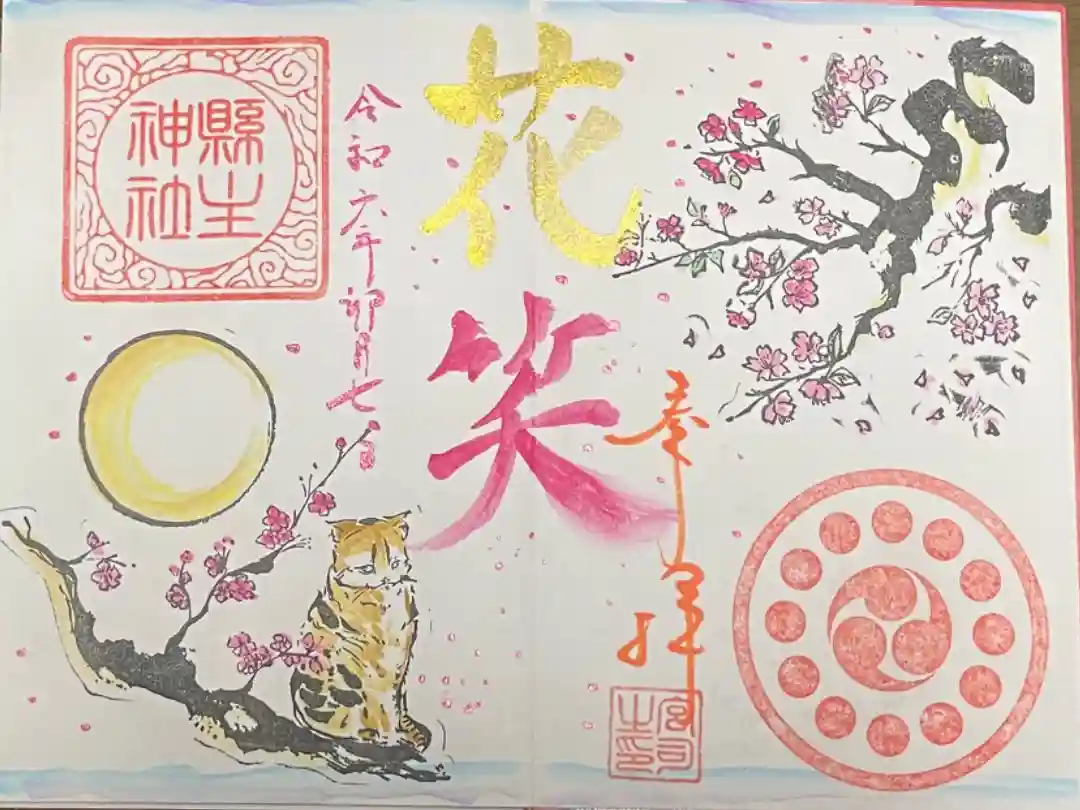 奉拝
宮司
之印
花笑
令和六年卯月七日
縣主
神社